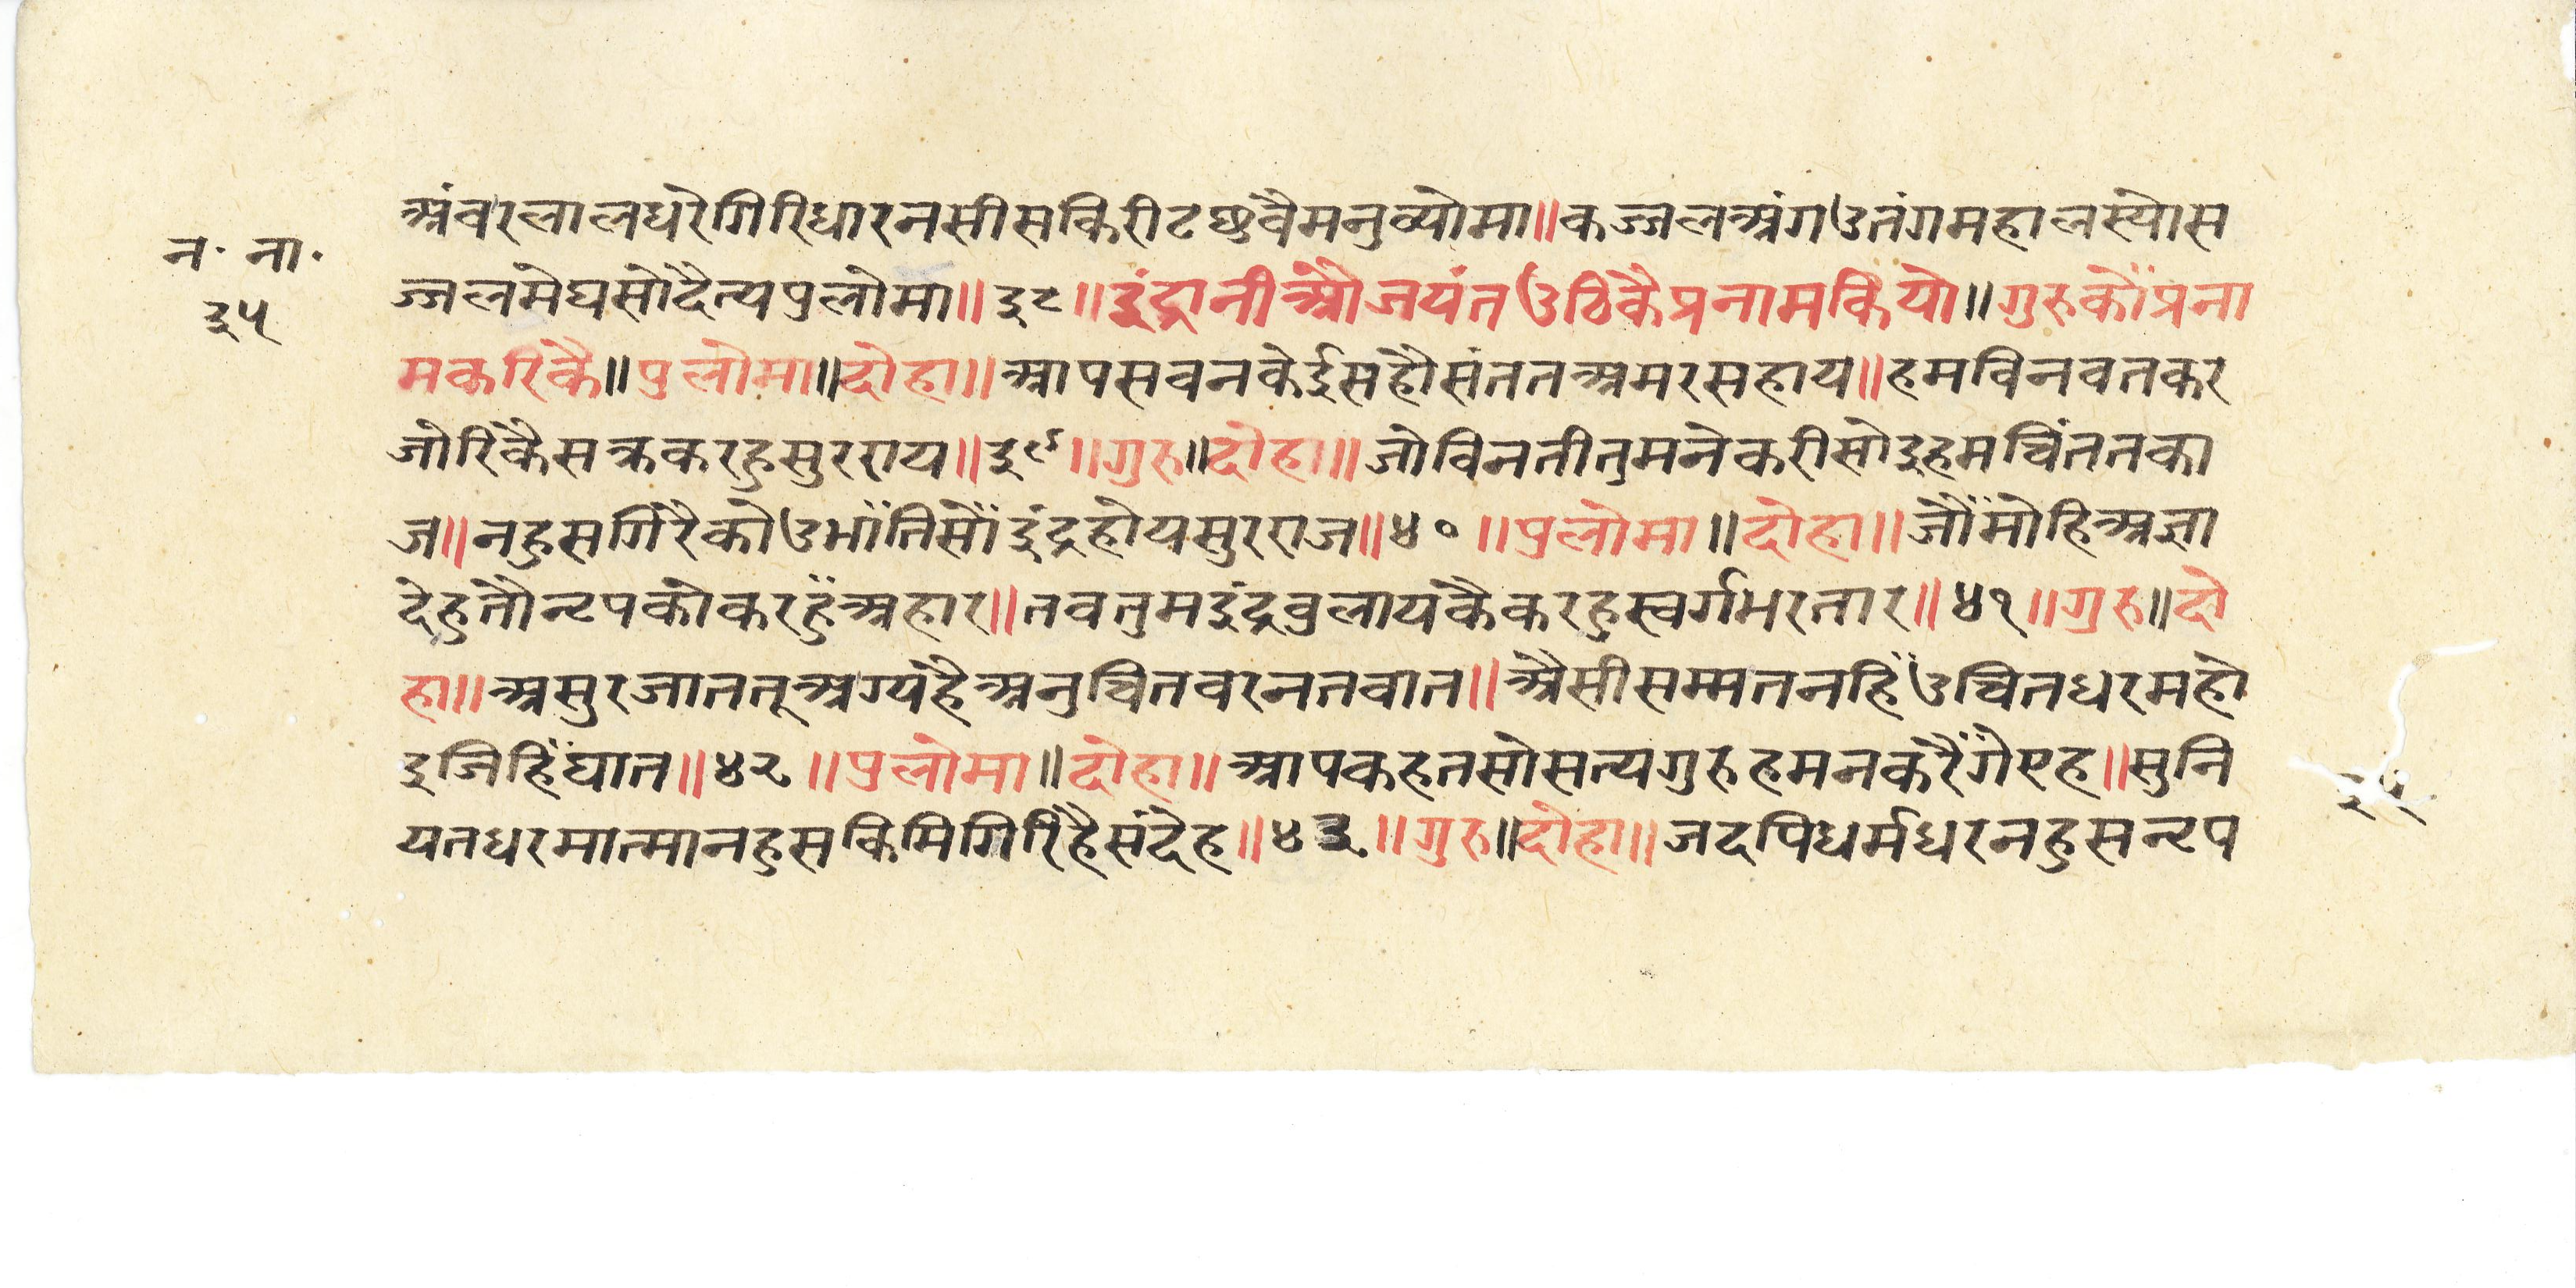 न॰ ना॰
३५
अंवरलालधरेगिरिधारनसीसकिरीटछुवैमनुव्योमा॥कज्जलअंगउतंगमहालस्योस
ज्जलमेघसोदैत्यपुलोमा॥३८॥इंद्रानीऔजयंतउठिकैप्रनामकियो॥गुरुकोंप्रना
मकरिकै॥पुलोमा॥दोहा॥आपसवनकेईसहौसंततअमरसहाय॥हमविनवतकर
जोरिकैसक्रकरहुसुरराय॥३९॥गुरु॥दोहा॥जोविनतीतुमनेकरीसोइहमचिंततका
ज॥नहुसगिरैकोउभाँतिसौंइंद्रहोयसुरराज॥४०॥पुलोमा॥दोहा॥जौंमोहिअज्ञा
देहुतौनृपकोकरहुँअहार॥तवतुमइंद्रवुलायकैकरहुस्वर्गभरतार॥४१॥गुरु॥दो
हा॥असुरजाततूअग्यहैअनुचितवरनतवात॥ऐसीसम्मतनहिंउचितधरमहो
इजिहिंघात॥४२॥पुलोमा॥दोहा॥आपकहतसोसत्यगुरुहमनकरैंगेएह॥सुनि
यतधरमात्मानहुसकिमिगिरिहैसंदेह॥४३॥गुरु॥दोहा॥जदपिधर्मधरनहुसनृप